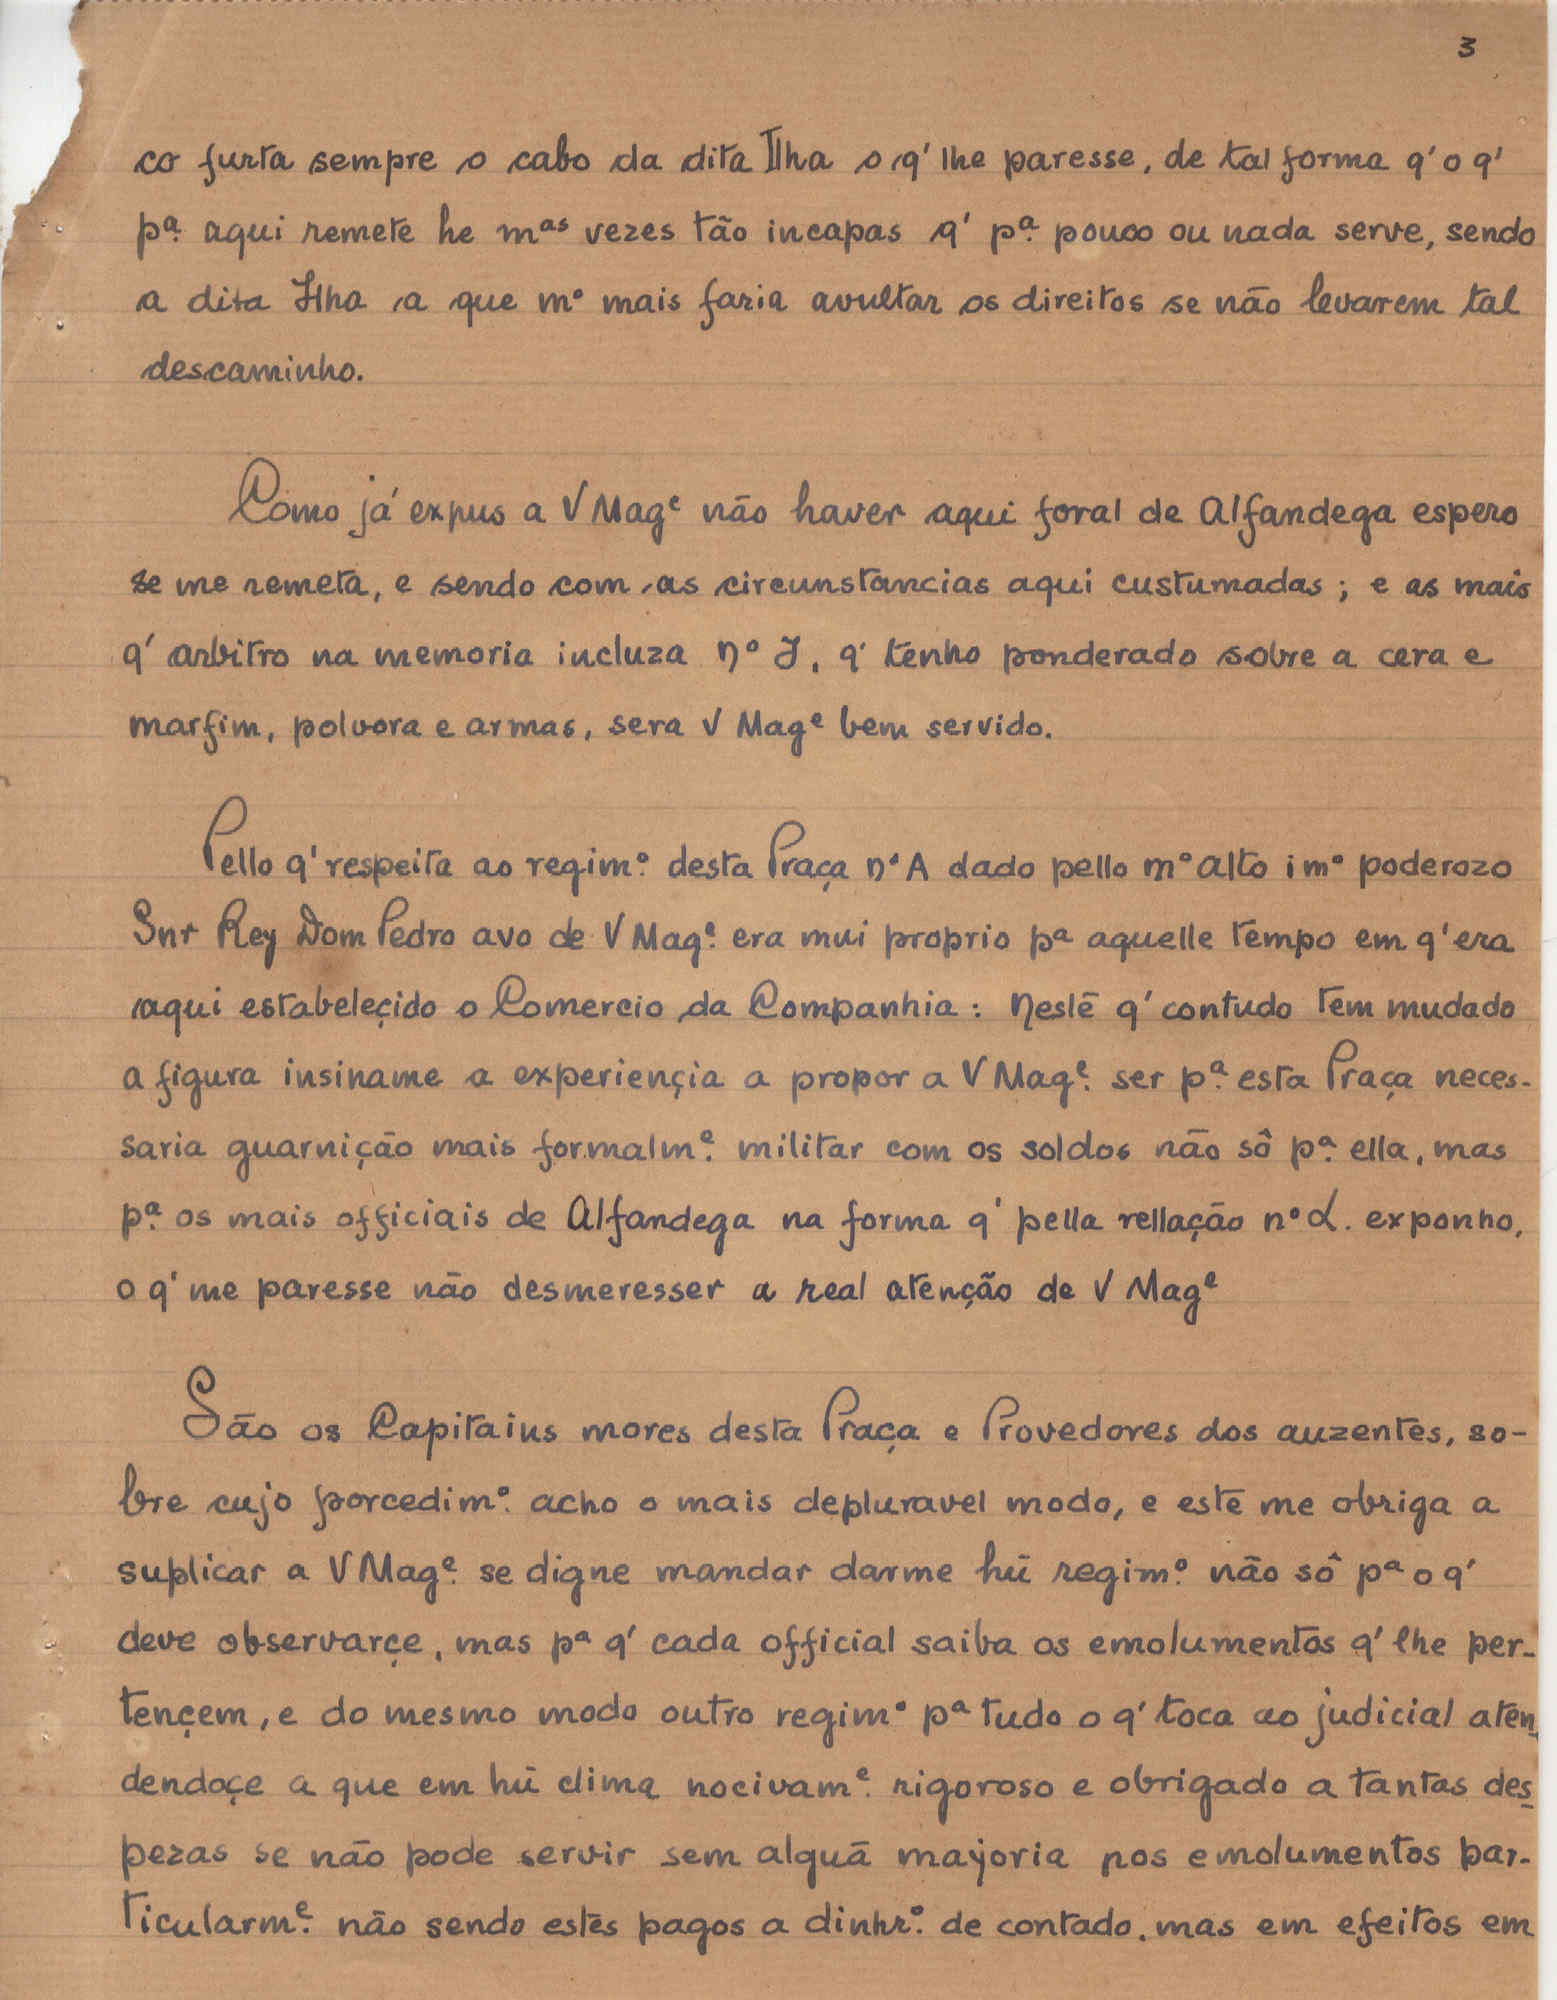 3
co furta sempre o cabo da dita Ilha o q' lhe paresse, de tal forma q' o q'
pª aqui remete he mas vezes tão incapas q' pª pouco ou nada serve, sendo
a dita Ilha a que mº mais faria avultar os direitos se não levarem tal
descaminho.
Como já expus a V Mage não haver aqui foral de Alfandega espero
se me remeta, e sendo com as circunstancias aqui custumadas; e as mais
q' arbitro na memoria incluza nº J, q' tenho ponderado sobre a cera e
marfim, polvora e armas, sera V Mage bem servido.
Pello q' respeita ao regimº desta Praça nº A dado pello mº alto i mº poderozo
Snr Rey Dom Pedro avo de V Mage. era mui proprio pª aquelle tempo em q' era
aqui estabeleçido o Comercio da Companhia: Neste q' contudo tem mudado
a figura insiname a experiençia a propor a V Mage. ser pª esta Praça neces-
saria guarnição mais formalme. militar com os soldos não sô pª ella, mas
pª os mais officiais de Alfandega na forma q' pella rellação nº L. exponho,
o q' me paresse não desmeresser a real atenção de V Mage
São os Capitains mores desta Praça e Provedores dos auzentes, so-
bre cujo porcedimº acho o mais depluravel modo, e este me obriga a
suplicar a V Mage. se digne mandar darme hũ regimº não sô pª o q'
deve observarçe, mas pª q' cada official saiba os emolumentos q' lhe per-
tençem, e do mesmo modo outro regimº pª tudo o q' toca ao judicial aten-
dendoçe a que em hũ clima nocivame. rigoroso e obrigado a tantas des-
pezas se não pode servir sem alguã mayoria nos emolumentos par-
ticularme. não sendo estes pagos a dinhrº de contado, mas em efeitos em